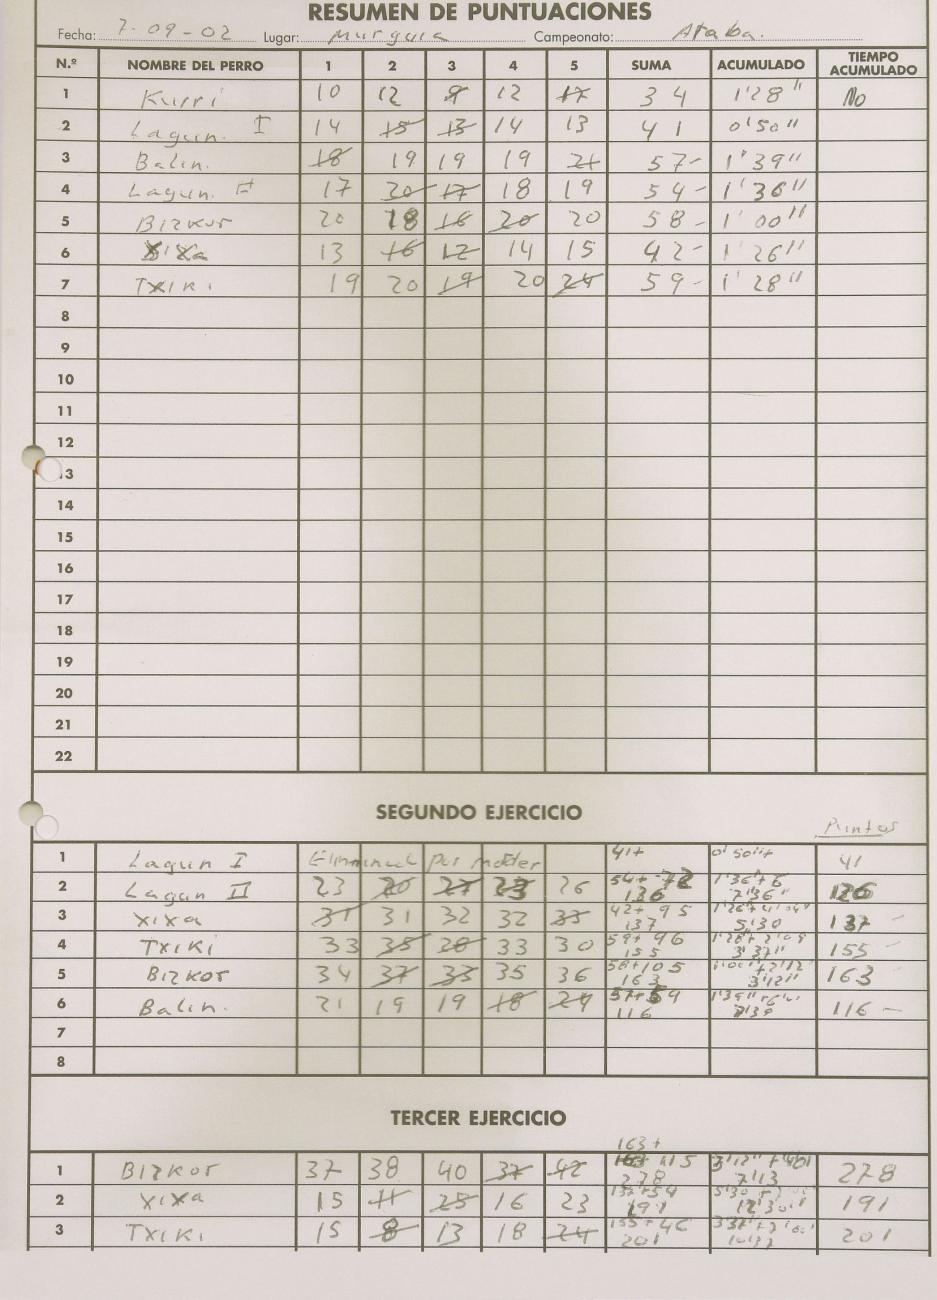 RESUMEN DE PUNTUACIONES
Fecha: 7-09-02 Lugar: Murguia Campeonato: Araba.
N.º NOMBRE DEL PERRO 1 2 3 4 5 SUMA ACUMULADO TIEMPO ACUMULADO
1 Kurri 10 12 9 12 17 34 1'28" No
2 Lagun I 14 15 13 14 13 41 0'50"
3 Balin. 18 19 19 19 21 57- 1'39"
4 Lagun II 17 20 17 18 19 54- 1'36"
5 Bizkor 20 18 16 20 20 58- 1'00"
6 Xixa 13 16 12 14 15 42- 1'26"
7 Txiki 19 20 19 20 24 59- 1'28"
8
9
10
11
12
13
14
15
16
17
18
19
20
21
22
SEGUNDO EJERCICIO
Puntos
1 Lagun I Eliminado por morder 41+ 0'50"+ 41
2 Lagun II 23 20 27 23 26 54+72 1'36"+6 126
136 7'36"
3 Xixa 31 31 32 32 33 42+95 137
137 5'30
4 Txiki 33 35 28 33 30 59+96 155
155 3'37"
5 Bizkor 34 37 33 35 36 58+105 163
163 3'12"
6 Balin. 21 19 19 18 24 57+59 116-
116 7'39
7
8
TERCER EJERCICIO
163+
1 Bizkor 37 38 40 37 42 115 278
278 7'13
2 Xixa 15 11 25 16 23 137+54 191
191
3 Txiki 15 8 13 18 24 155+46 201
201